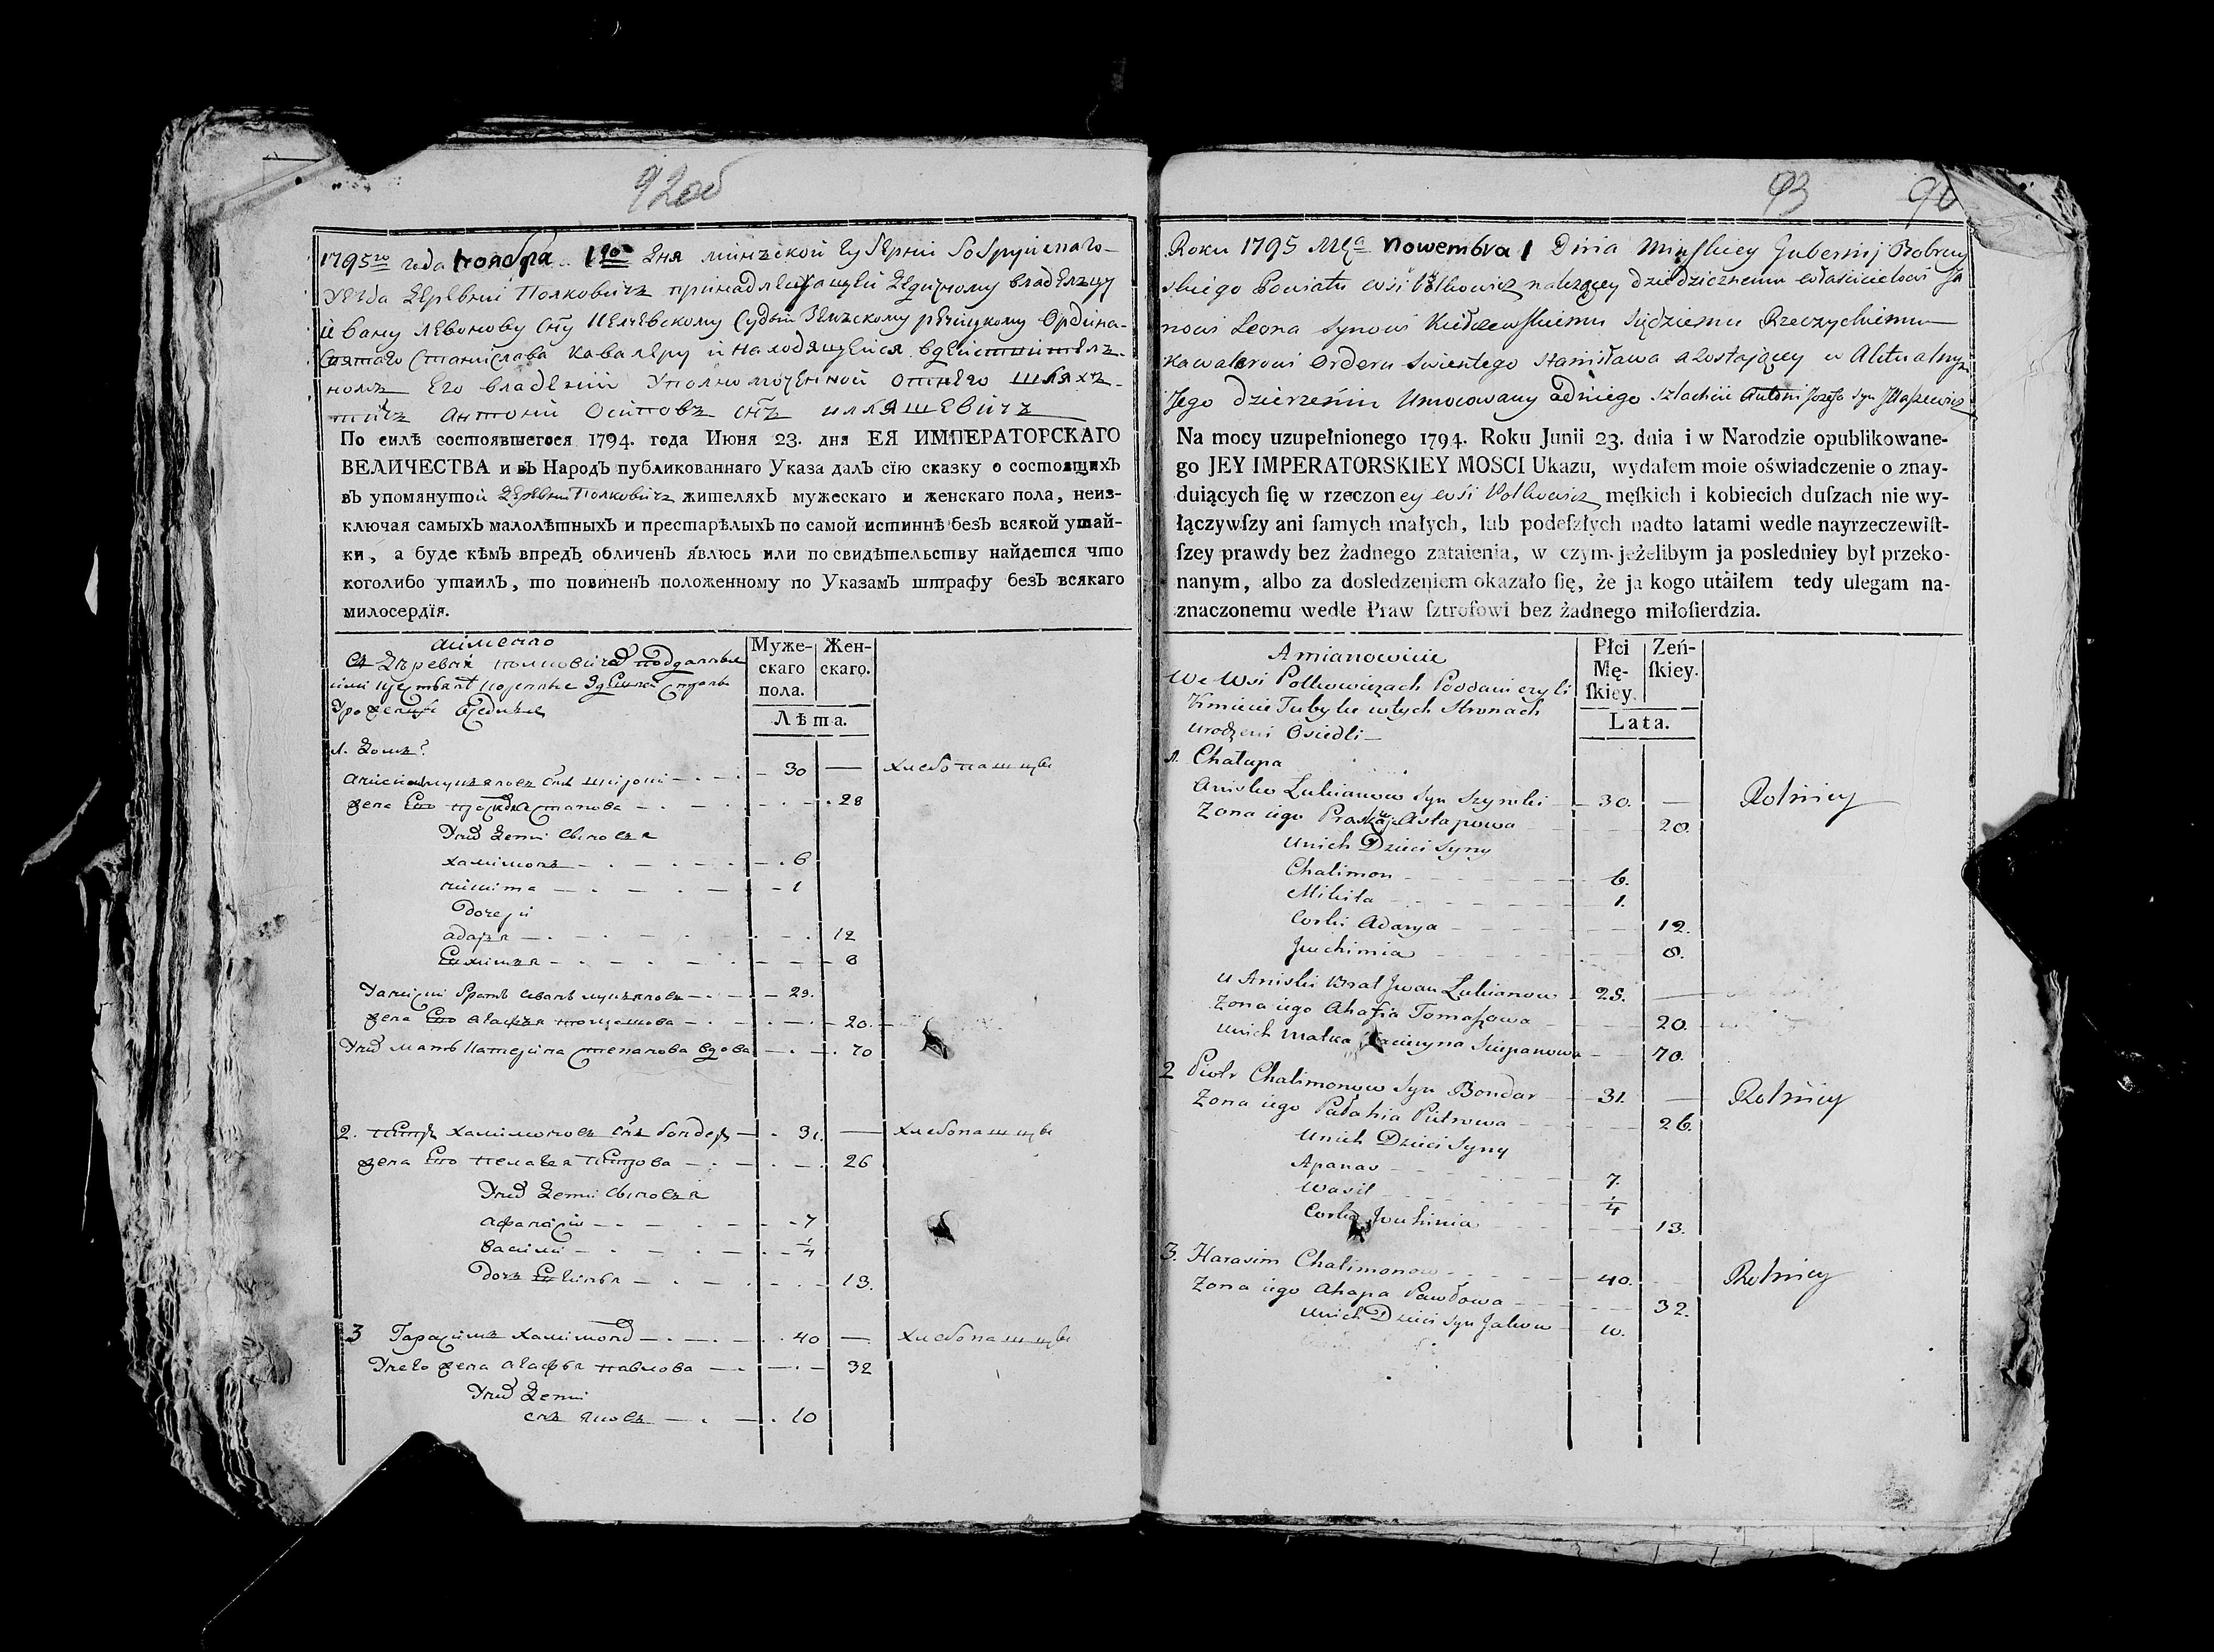 92об
1795го года Ноября 1го дня минской губернии бобруйскаго
уезда деревни Полковичъ принадлежащей дедичному владелцу
Ивану Левонову сну Келчевскому судьи земскому речицкому Ордина
святаго Станислава кавалеру и находящейся вдействител
номъ Его владении Уполномоченной отнего шляхъ
тичъ Антоний Осиповъ снъ илляшевичъ
По силѣ состоявшегося 1794. года Июня 23. дня ЕЯ ИМПЕРАТОРСКАГО
ВЕЛИЧЕСТВА и въ Народъ публикованнаго Указа далъ сїю сказку о состоящихъ
въ упомянутой деревни Полковичъ жителяхъ мужескаго и женскаго пола, неиз-
ключая самыхъ малолѣтныхъ и престарѣлыхъ по самой истиннѣ безъ всякой утай-
ки, а буде кѣмъ впредь обличенъ явлюсь или по свидѣтельству найдется что
коголибо утаилъ, то повиненъ положенному по Указамъ штрафу безъ всякаго
милосердїя.
аименно
Муже-
скаго
пола.
Жен-
скаго.
Лѣта.
1. Домъ
30 — хлебопашцы
жена Его 28
Уних дети сыновья
халимонъ 6
никита 1
дочери
12
8
брат иванъ 29.
жена Его агафья 20.
Уних мать Катерина степанова вдова 70
2. петръ халимоновъ снъ бондар 31. — хлебопашцы
жена Его пелагея петрова 26
Уних дети сыновья
афанасий 7
васили 1/4
дочь 13.
3 Гарасимъ халимонов 40 — хлебопашцы
Унего жена агафья павлова 32
Уних дети
снъ яковъ 10
93 90
Roku 1795 Mca Nowembra 1 Dnia Minskiey Gubernij Bobruy
skiego Powiatu wsi Polkowicz należącey dziedzicznemu właścicielowi Ja
nowi Leona Synowi Kiełczewskiemu Sędziemu Rzeczyckiemu
Kawalerowi Orderu Swientego Stanisława a zostającey w Aktualnym
Jego dzierżeniu Umocowany odniego szlachcic Antoni Jozefa Syn Jllaszewicz
Na mocy uzupełnionego 1794. Roku Junii 23. dnia i w Narodzie opublikowane-
go JEY IMPERATORSKIEY MOSCI Ukazu, wydałem moie oświadczenie o znay-
duiących ſię w rzeczoney wsi Polkowicz męſkich i kobiecich duſzach nie wy-
łączywſzy ani ſamych małych, lub podeſzłych nadto latami wedle nayrzeczewiſt-
ſzey prawdy bez żadnego zataienia, w czym jeżelibym ja posledniey był przeko-
nanym, albo za dosledzeniem okazało ſię, że ja kogo utaiłem tedy ulegam na-
znaczonemu wedle Praw ſztroſowi bez żadnego miłoſierdzia.
Amianowicie
We Wsi Polkowiczach Poddani czyli
Kmiecie Tubylce wtych Stronach
urodzeni Osiedli
Płci
Mę-
ſkiey.
Zeń-
ſkiey.
Lata.
1. Chałupa
Anisko Łukianow Syn Szymki 30. — Rolnicy
Zona iego Astapowa 20.
Unich Dzieci Syny
Chalimon 6.
Mikita 1.
Corki Adarya 12.
Juchimia 8.
U Aniski Brat Jwan Łukianow 28. —
Zona iego Ahafia Tomaszowa 20.
Unich Matka 70.
2 Piotr Chalimonow Syn Bondar 31. — Rolnicy
Zona iego Pałahia Piotrowa 26.
Unich Dzieci Syny
Apanas 7.
Wasil 1/4
Corka 13.
3. Harasim Chalimonow 40. Rolnicy
Zona iego Ahapa Pawłowa 32.
Unich Dzieci Syn Jakow 10.